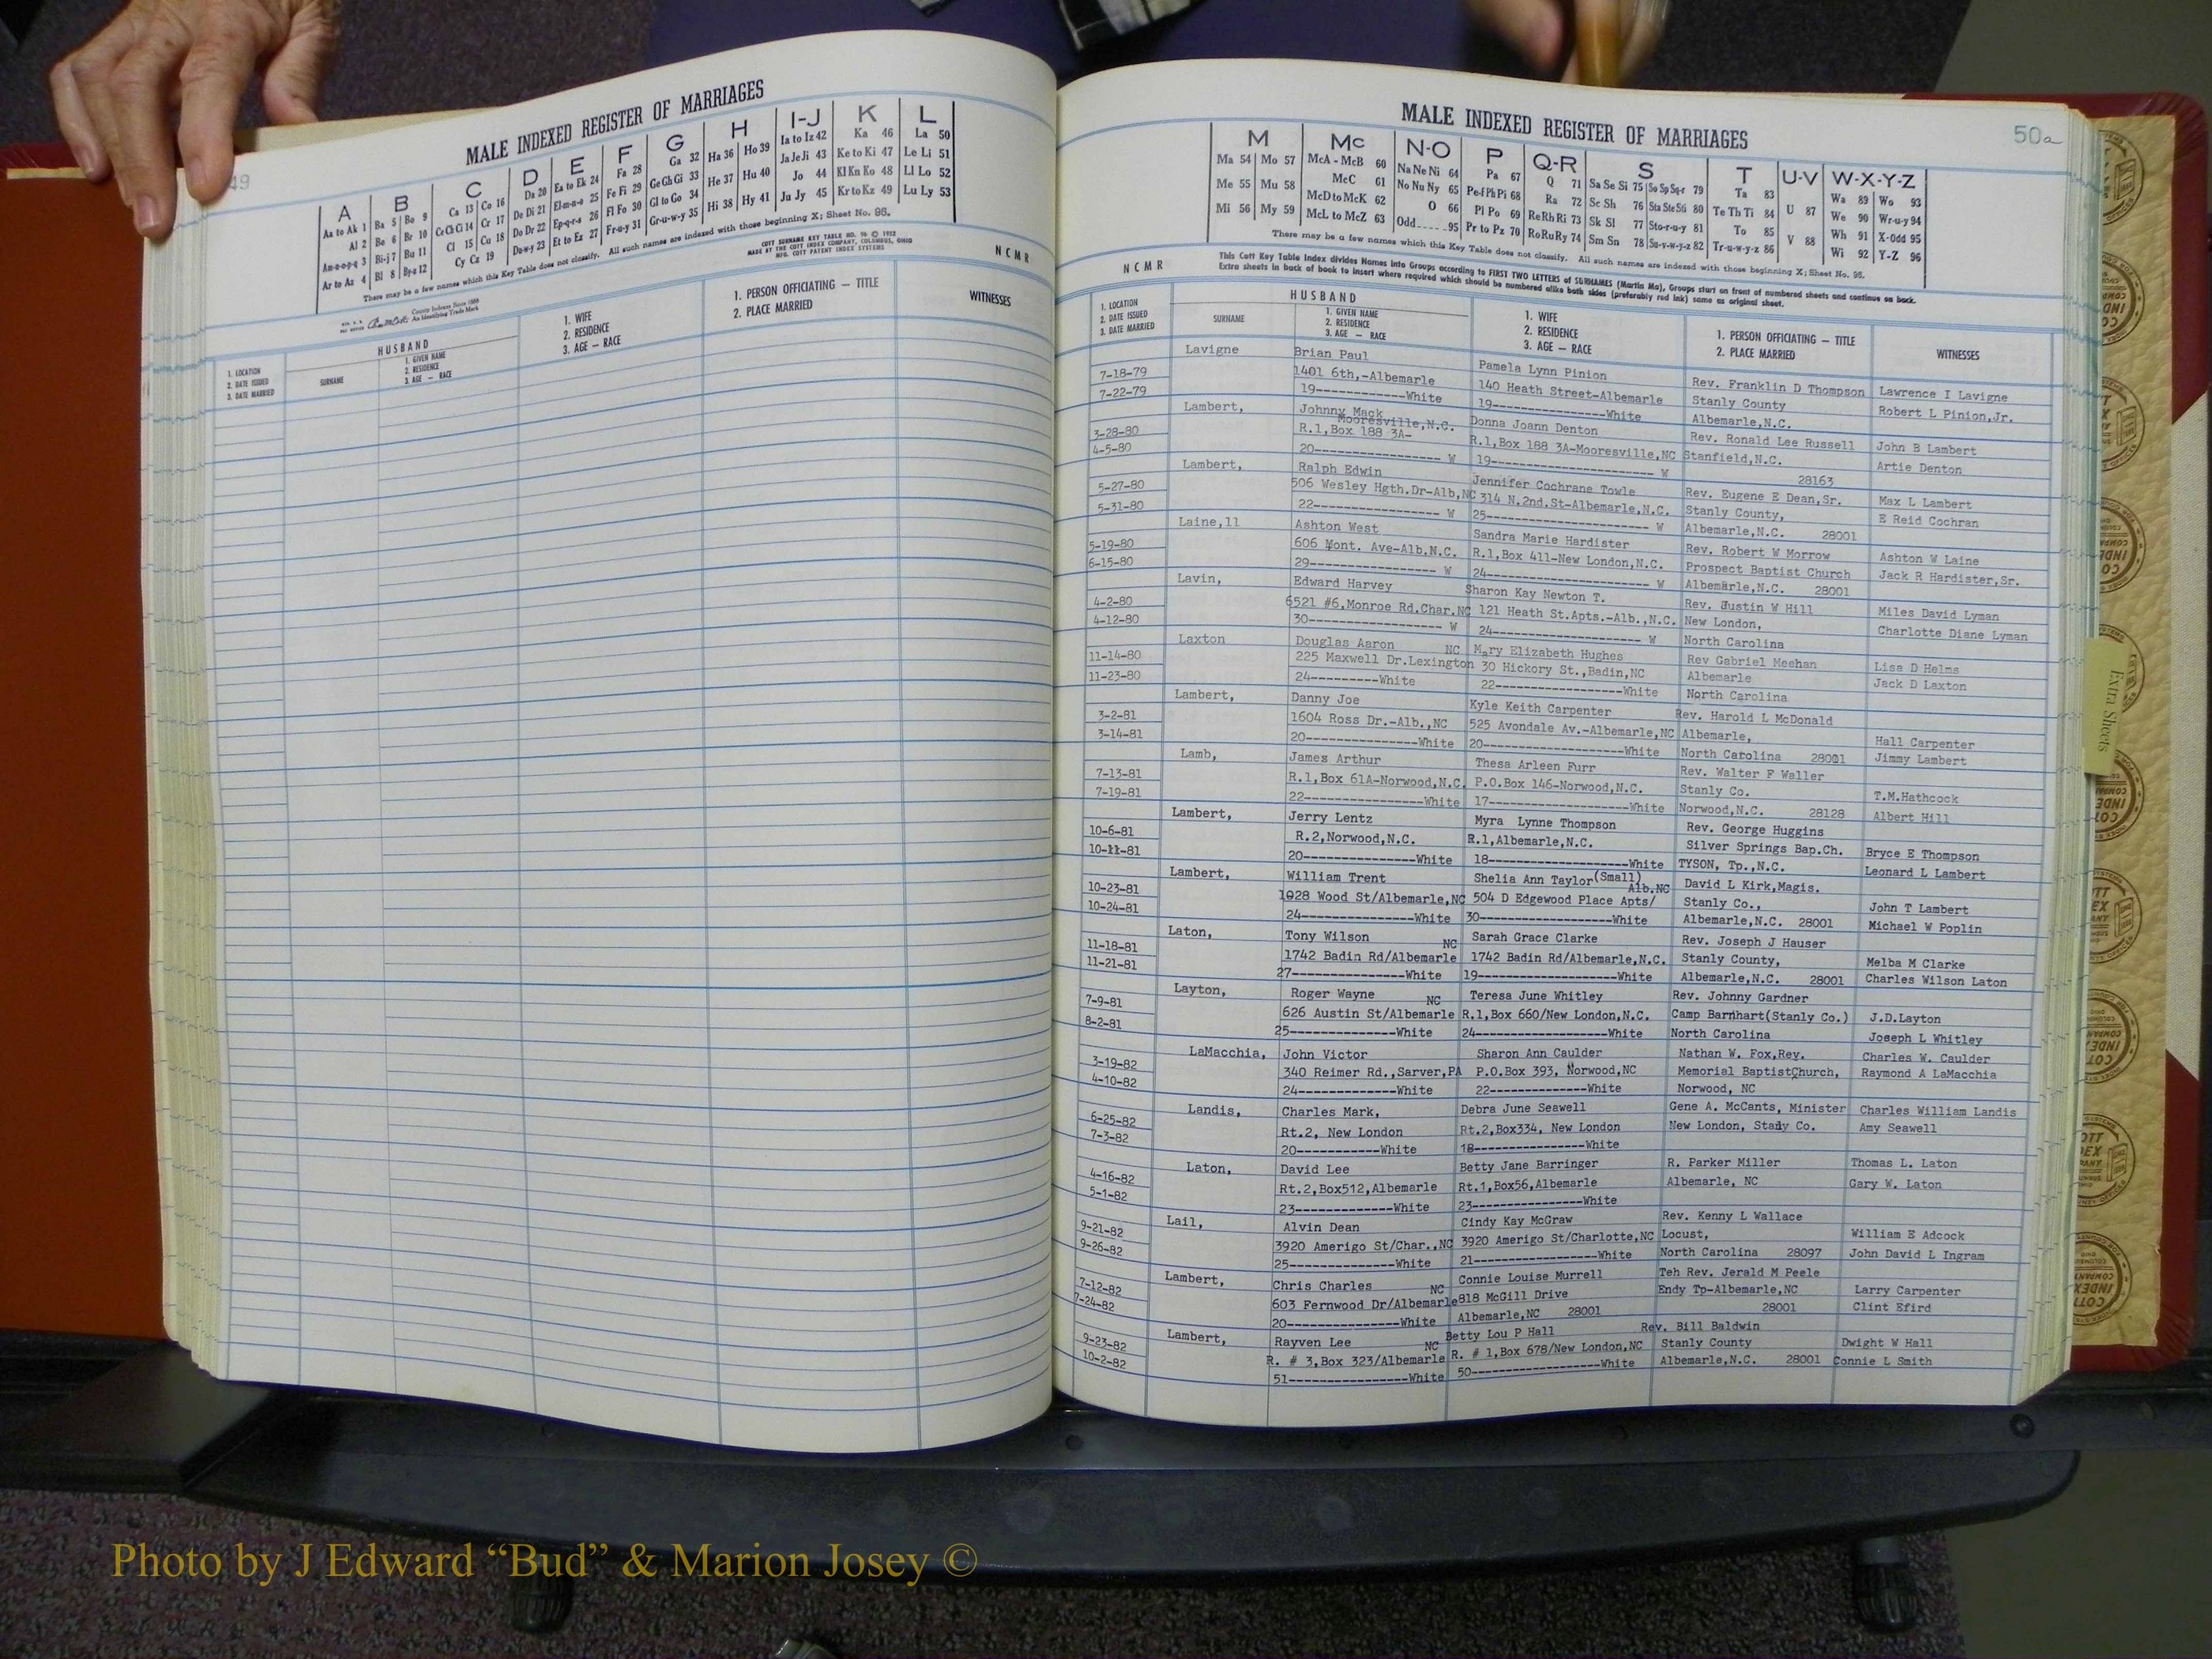 49
MALE INDEXED REGISTER OF MARRIAGES
A B C D E F G H I-J K L
Aa to Ak 1 Ba 5 Bo 9 Ca 13 Co 16 Da 20 Ea to Ek 24 Fa 28 Ga 32 Ha 36 Ho 39 Ia to Iz 42 Ka 46 La 50
Al 2 Be 6 Br 10 Ce Ch Ci 14 Cr 17 De Di 21 El-m-n-o 25 Fe Fi 29 Ge Gh Gi 33 He 37 Hu 40 Ja Je Ji 43 Ke to Ki 47 Le Li 51
Am-n-o-p-q 3 Bi-j 7 Bu 11 Cl 15 Cu 18 Do Dr 22 Ep-q-r-s 26 Fl Fo 30 Gl to Go 34 Hi 38 Hy 41 Jo 44 Kl Kn Ko 48 Ll Lo 52
Ar to Az 4 Bl 8 By-z 12 Cy Cz 19 Du-w-y 23 Et to Ez 27 Fr-u-y 31 Gr-u-w-y 35 Ju Jy 45 Kr to Kz 49 Lu Ly 53
There may be a few names which this Key Table does not classify. All such names are indexed with those beginning X; Sheet No. 95.
County Indexes Since 1888
An Identifying Trade Mark
COTT SURNAME KEY TABLE NO. 96 © 1952
MADE BY THE COTT INDEX COMPANY, COLUMBUS, OHIO
MFG. COTT PATENT INDEX SYSTEMS
N C M R
1. LOCATION
2. DATE ISSUED
3. DATE MARRIED
HUSBAND
SURNAME
1. GIVEN NAME
2. RESIDENCE
3. AGE — RACE
1. WIFE
2. RESIDENCE
3. AGE — RACE
1. PERSON OFFICIATING — TITLE
2. PLACE MARRIED
WITNESSES
50a
MALE INDEXED REGISTER OF MARRIAGES
M Mc N-O P Q-R S T U-V W-X-Y-Z
Ma 54 Mo 57 McA - McB 60 Na Ne Ni 64 Pa 67 Q 71 Sa Se Si 75 So Sp Sq-r 79 Ta 83 U 87 Wa 89 Wo 93
Me 55 Mu 58 McC 61 No Nu Ny 65 Pe-f Ph Pi 68 Ra 72 Sc Sh 76 Sta Ste Sti 80 Te Th Ti 84 V 88 We 90 Wr-u-y 94
Mi 56 My 59 McD to McK 62 O 66 Pl Po 69 Re Rh Ri 73 Sk Sl 77 Sto-r-u-y 81 To 85 Wh 91 X-Odd 95
McL to McZ 63 Odd 95 Pr to Pz 70 Ro Ru Ry 74 Sm Sn 78 Su-v-w-y-z 82 Tr-u-w-y-z 86 Wi 92 Y-Z 96
There may be a few names which this Key Table does not classify. All such names are indexed with those beginning X; Sheet No. 95.
This Cott Key Table Index divides Names into Groups according to FIRST TWO LETTERS of SURNAMES (Martin Ma), Groups start on front of numbered sheets and continue on back.
Extra sheets in back of book to insert where required which should be numbered alike both sides (preferably red ink) same as original sheet.
N C M R
1. LOCATION
2. DATE ISSUED
3. DATE MARRIED
HUSBAND
SURNAME
1. GIVEN NAME
2. RESIDENCE
3. AGE — RACE
1. WIFE
2. RESIDENCE
3. AGE — RACE
1. PERSON OFFICIATING — TITLE
2. PLACE MARRIED
WITNESSES
Lavigne Brian Paul Pamela Lynn Pinion Rev. Franklin D Thompson Lawrence I Lavigne
7-18-79 1401 6th,-Albemarle 140 Heath Street-Albemarle Stanly County Robert L Pinion,Jr.
7-22-79 19----------White 19---------------White Albemarle,N.C.
Lambert, Johnny Mack Donna Joann Denton Rev. Ronald Lee Russell John B Lambert
Mooresville,N.C.
3-28-80 R.1,Box 188 3A- R.1,Box 188 3A-Mooresville,NC Stanfield,N.C. Artie Denton
4-5-80 20---------------- W 19--------------------- W 28163
Lambert, Ralph Edwin Jennifer Cochrane Towle Rev. Eugene E Dean,Sr. Max L Lambert
5-27-80 506 Wesley Hgth.Dr-Alb,NC 314 N.2nd.St-Albemarle,N.C. Stanly County, E Reid Cochran
5-31-80 22---------------- W 25--------------------- W Albemarle,N.C. 28001
Laine,11 Ashton West Sandra Marie Hardister Rev. Robert W Morrow Ashton W Laine
5-19-80 606 Mont. Ave-Alb,N.C. R.1,Box 411-New London,N.C. Prospect Baptist Church Jack R Hardister,Sr.
6-15-80 29---------------- W 24--------------------- W Albemarle,N.C. 28001
Lavin, Edward Harvey Sharon Kay Newton T. Rev. Justin W Hill Miles David Lyman
4-2-80 6521 #6,Monroe Rd.Char,NC 121 Heath St.Apts.-Alb.,N.C. New London, Charlotte Diane Lyman
4-12-80 30---------------- W 24--------------------- W North Carolina
Laxton Douglas Aaron NC Mary Elizabeth Hughes Rev Gabriel Meehan Lisa D Helms
11-14-80 225 Maxwell Dr.Lexington 30 Hickory St.,Badin,NC Albemarle Jack D Laxton
11-23-80 24---------White 22------------------White North Carolina
Lambert, Danny Joe Kyle Keith Carpenter Rev. Harold L McDonald
3-2-81 1604 Ross Dr.-Alb.,NC 525 Avondale Av.-Albemarle,NC Albemarle, Hall Carpenter
3-14-81 20--------------White 20------------------White North Carolina 28001 Jimmy Lambert
Lamb, James Arthur Thesa Arleen Furr Rev. Walter F Waller
7-13-81 R.1,Box 61A-Norwood,N.C. P.O.Box 146-Norwood,N.C. Stanly Co. T.M.Hathcock
7-19-81 22---------------White 17------------------White Norwood,N.C. 28128 Albert Hill
Lambert, Jerry Lentz Myra Lynne Thompson Rev. George Huggins
10-6-81 R.2,Norwood,N.C. R.1,Albemarle,N.C. Silver Springs Bap.Ch. Bryce E Thompson
10-11-81 20--------------White 18------------------White TYSON, Tp.,N.C. Leonard L Lambert
Lambert, William Trent Shelia Ann Taylor(Small) David L Kirk,Magis.
Alb.NC
10-23-81 1028 Wood St/Albemarle,NC 504 D Edgewood Place Apts/ Stanly Co., John T Lambert
10-24-81 24--------------White 30-----------------White Albemarle,N.C. 28001 Michael W Poplin
Laton, Tony Wilson NC Sarah Grace Clarke Rev. Joseph J Hauser
11-18-81 1742 Badin Rd/Albemarle 1742 Badin Rd/Albemarle,N.C. Stanly County, Melba M Clarke
11-21-81 27--------------White 19------------------White Albemarle,N.C. 28001 Charles Wilson Laton
Layton, Roger Wayne NC Teresa June Whitley Rev. Johnny Gardner
7-9-81 626 Austin St/Albemarle R.1,Box 660/New London,N.C. Camp Barnhart(Stanly Co.) J.D.Layton
8-2-81 25--------------White 24-----------------White North Carolina Joseph L Whitley
LaMacchia, John Victor Sharon Ann Caulder Nathan W. Fox,Rev. Charles W. Caulder
3-19-82 340 Reimer Rd.,Sarver,PA P.O.Box 393, Norwood,NC Memorial BaptistChurch, Raymond A LaMacchia
4-10-82 24------------White 22-------------White Norwood, NC
Landis, Charles Mark, Debra June Seawell Gene A. McCants, Minister Charles William Landis
6-25-82 Rt.2, New London Rt.2,Box334, New London New London, Stanly Co. Amy Seawell
7-3-82 20-----------White 18--------------White
Laton, David Lee Betty Jane Barringer R. Parker Miller Thomas L. Laton
4-16-82 Rt.2,Box512,Albemarle Rt.1,Box56,Albemarle Albemarle, NC Gary W. Laton
5-1-82 23-------------White 23--------------White
Lail, Alvin Dean Cindy Kay McGraw Rev. Kenny L Wallace
9-21-82 3920 Amerigo St/Char.,NC 3920 Amerigo St/Charlotte,NC Locust, William E Adcock
9-26-82 25-------------White 21----------------White North Carolina 28097 John David L Ingram
Lambert, Chris Charles NC Connie Louise Murrell Teh Rev. Jerald M Peele
7-12-82 603 Fernwood Dr/Albemarle 818 McGill Drive Endy Tp-Albemarle,NC Larry Carpenter
7-24-82 20---------------White Albemarle,NC 28001 28001 Clint Efird
Lambert, Rayven Lee NC Betty Lou P Hall Rev. Bill Baldwin
9-23-82 R. # 3,Box 323/Albemarle R. # 1,Box 678/New London,NC Stanly County Dwight W Hall
10-2-82 51----------------White 50-----------------White Albemarle,N.C. 28001 Connie L Smith
Extra Sheets
Photo by J Edward “Bud” & Marion Josey ©